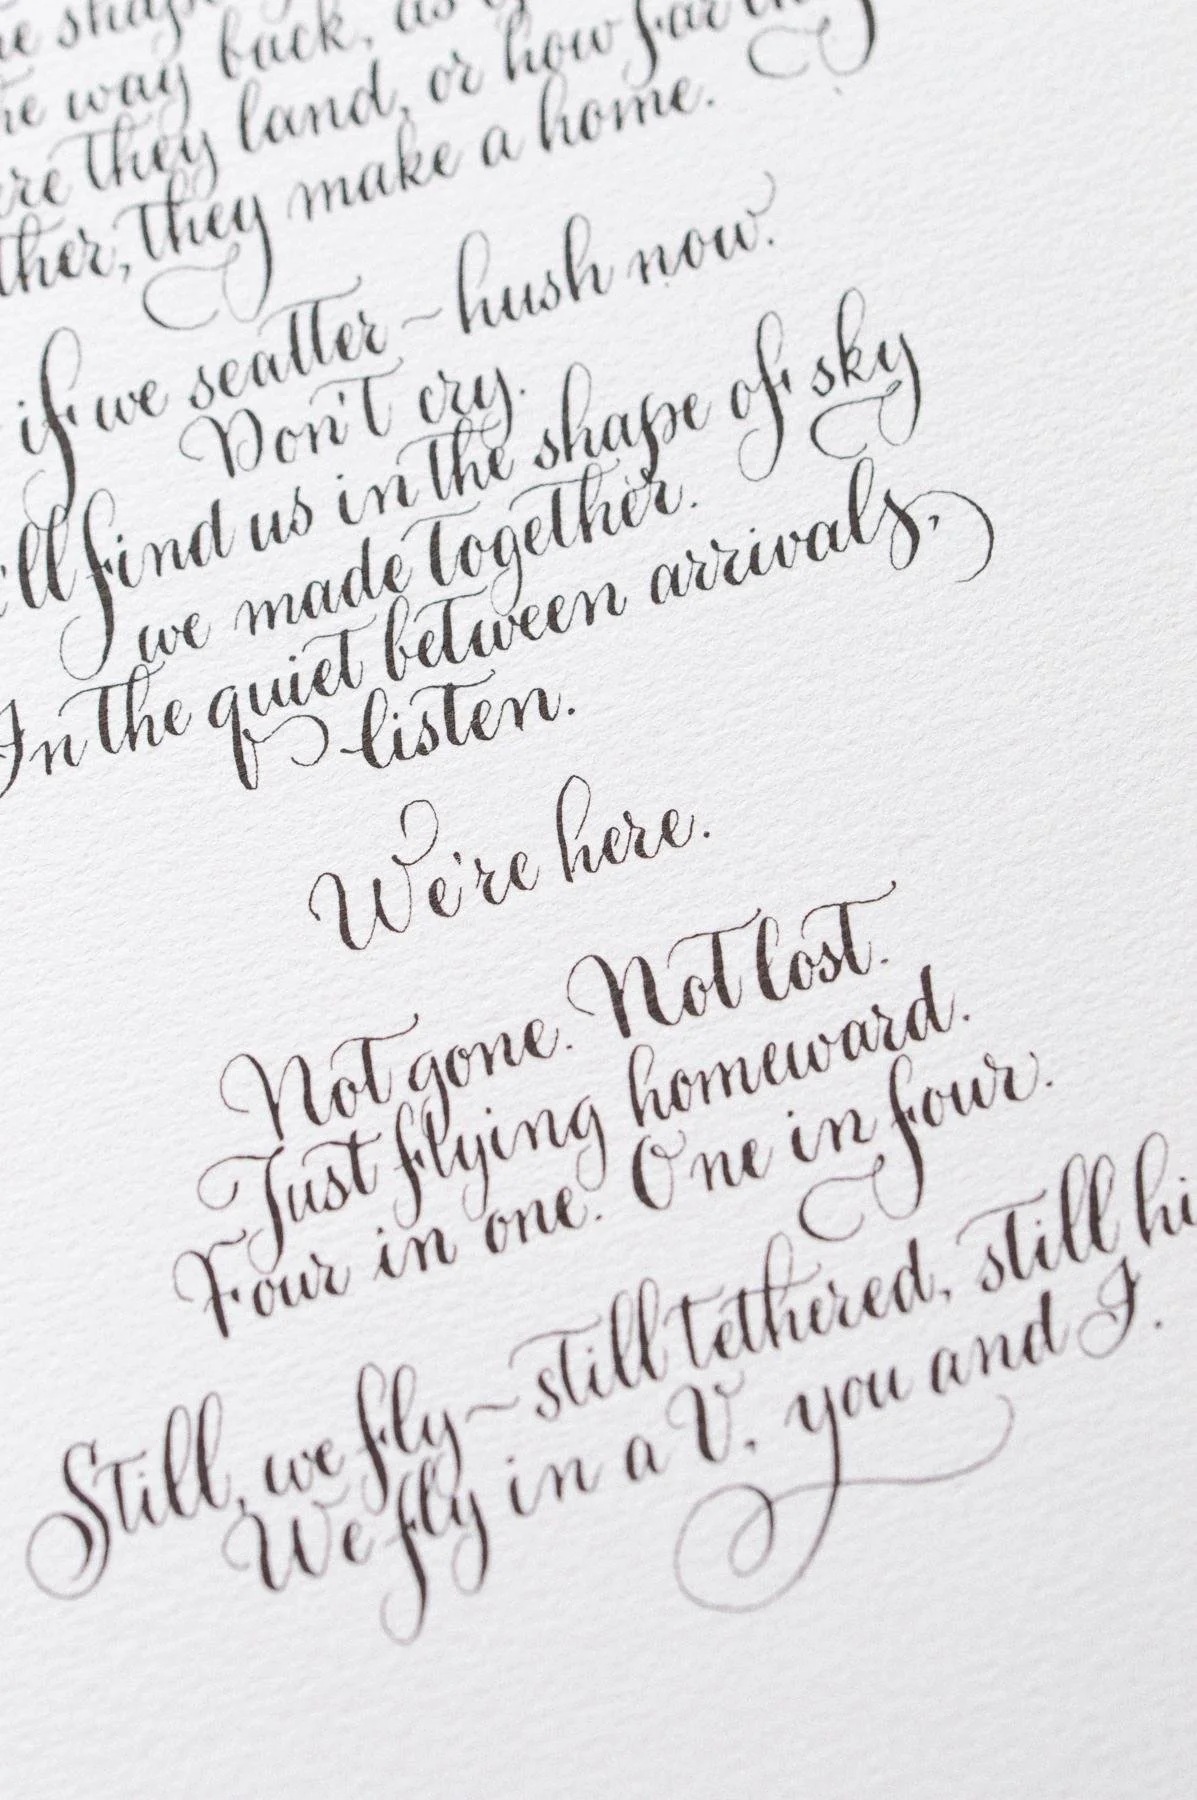 shape
way back, as
they land, or how far
they make a home.
if we scatter ~ hush now.
Don't cry.
find us in the shape of sky
we made together.
In the quiet between arrivals,
listen.
We're here.
Not gone. Not lost.
Just flying homeward.
Four in one. One in four.
Still, we fly ~ still tethered, still
We fly in a V, you and I.